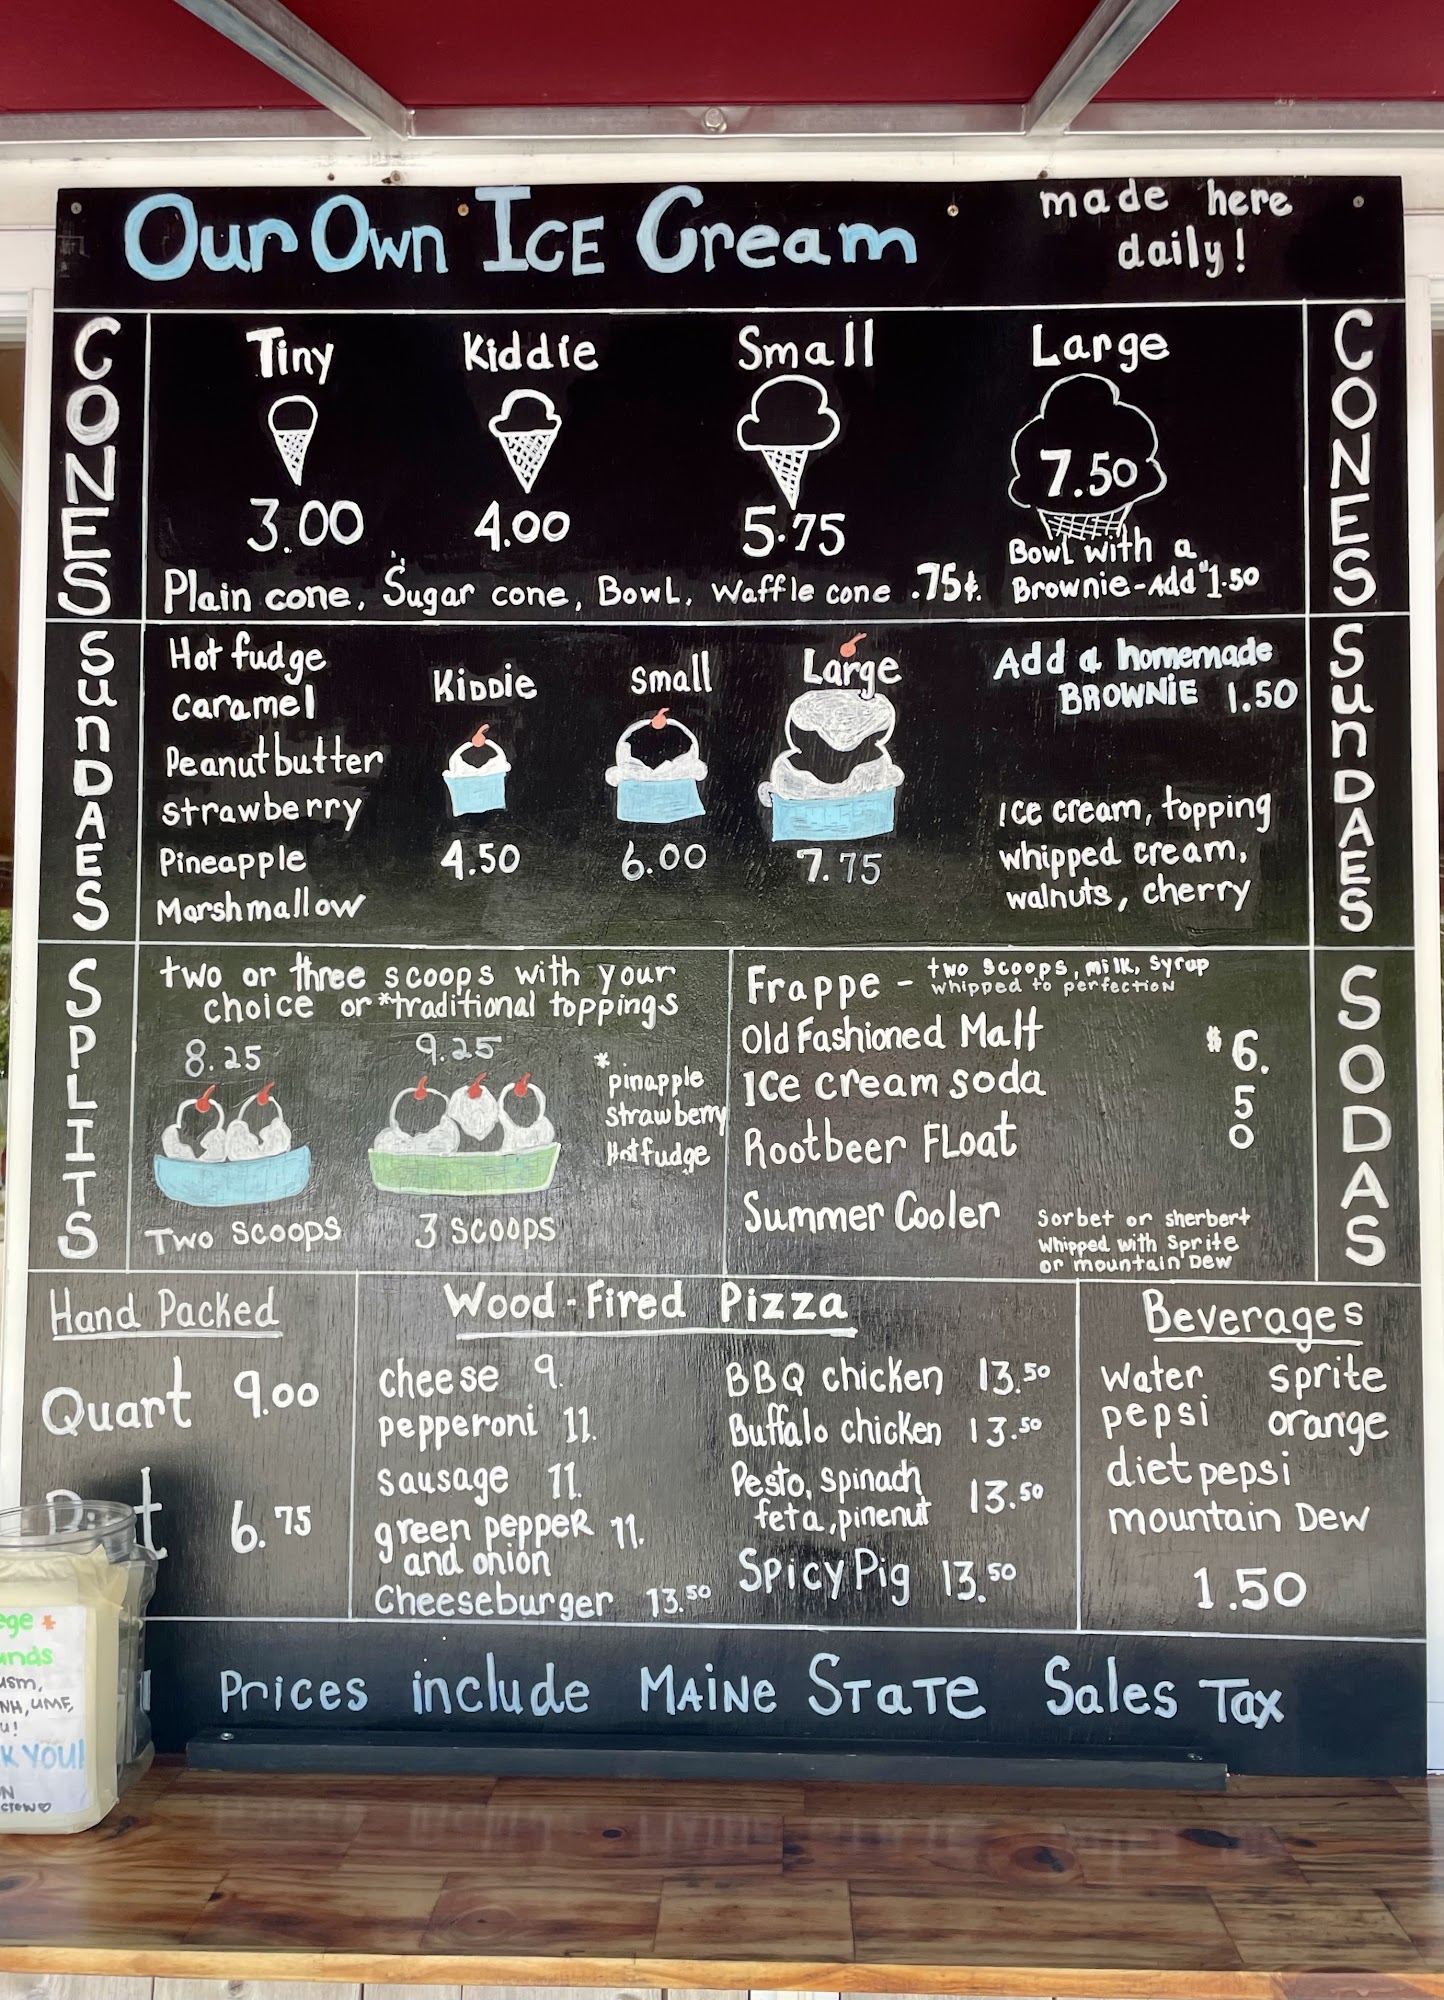 Our Own Ice Cream
made here
daily!
CONES
Tiny
Kiddie
Small
Large
3.00
4.00
5.75
7.50
Plain cone, Sugar cone, Bowl, Waffle cone .75¢
Bowl with a
Brownie-Add $1.50
CONES
SunDAES
Hot fudge
caramel
Peanutbutter
strawberry
Pineapple
Marshmallow
Kiddie
Small
Large
4.50
6.00
7.75
Add a homemade
BROWNIE 1.50
Ice cream, topping
whipped cream,
walnuts, cherry
SunDAES
SPLITS
two or three scoops with your
choice or *traditional toppings
8.25
9.25
*
pinapple
strawberry
Hotfudge
Two scoops
3 scoops
Frappe - two scoops, milk, syrup
whipped to perfection
Old Fashioned Malt
Ice cream soda
Rootbeer FLoat
$6.
5
0
Summer Cooler
Sorbet or sherbert
whipped with Sprite
or mountain Dew
SODAS
Hand Packed
Quart 9.00
6.75
Wood-Fired Pizza
cheese 9.
pepperoni 11.
sausage 11.
green pepper 11.
and onion
Cheeseburger 13.50
BBQ chicken 13.50
Buffalo chicken 13.50
Pesto, spinach
feta, pinenut 13.50
Spicy Pig 13.50
Beverages
water sprite
pepsi orange
diet pepsi
mountain Dew
1.50
Prices include MAINE STATE Sales Tax
NH, UMF,
YOU!